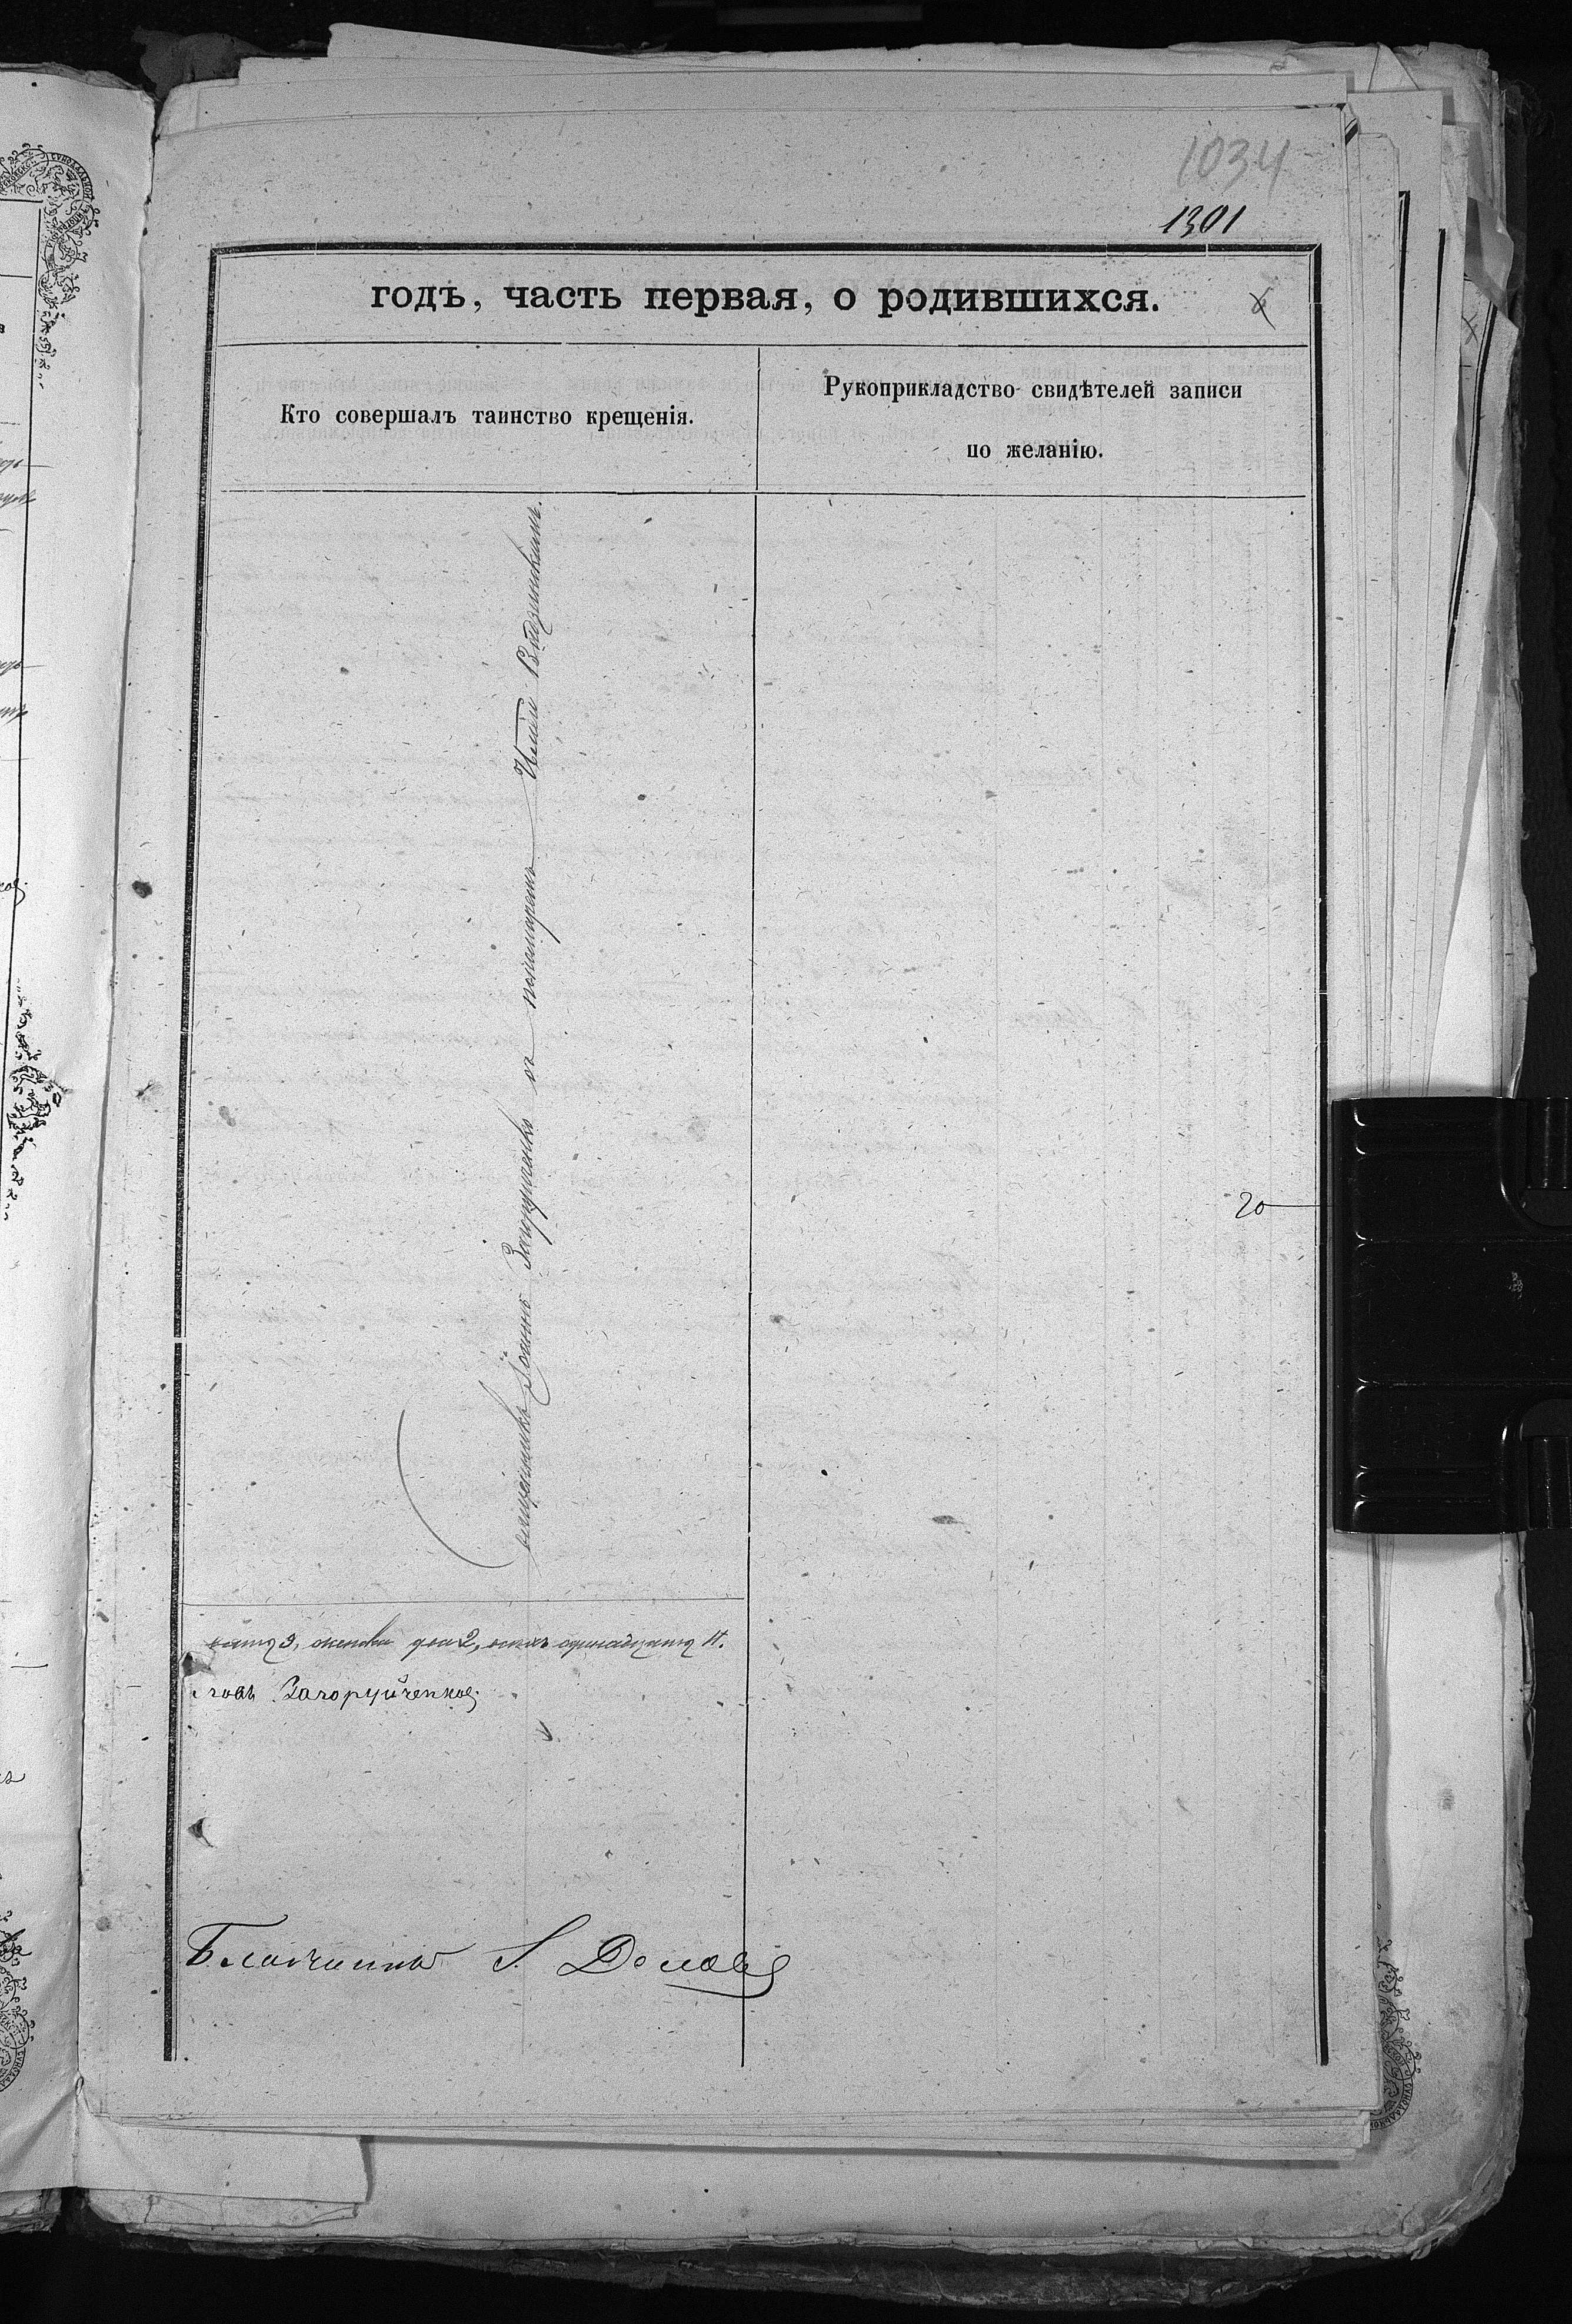 1034
1301
годъ, часть первая, о родившихся.
Кто совершалъ таинство крещенія.
Рукоприкладство свидѣтелей записи
по желанію.
священникъ Іоаннъ Загоруйченко съ пономаремъ
20
9, женска два 2, одинадцать 11.
Загоруйченков
Благочинный